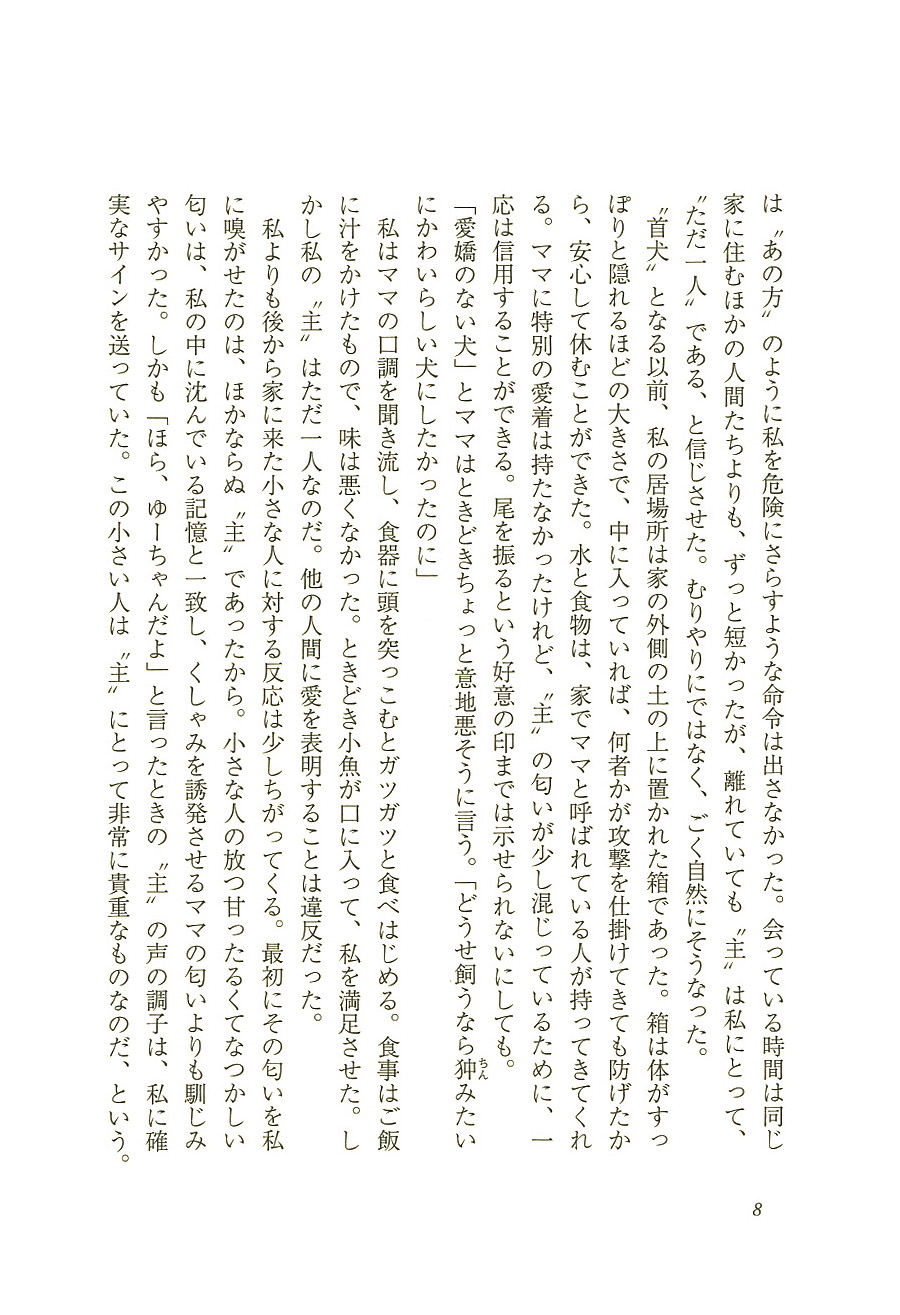 は〝あの方〟のように私を危険にさらすような命令は出さなかった。会っている時間は同じ
家に住むほかの人間たちよりも、ずっと短かったが、離れていても〝主〟は私にとって、
〝ただ一人〟である、と信じさせた。むりやりにではなく、ごく自然にそうなった。
〝首犬〟となる以前、私の居場所は家の外側の土の上に置かれた箱であった。箱は体がすっ
ぽりと隠れるほどの大きさで、中に入っていれば、何者かが攻撃を仕掛けてきても防げたか
ら、安心して休むことができた。水と食物は、家でママと呼ばれている人が持ってきてくれ
る。ママに特別の愛着は持たなかったけれど、〝主〟の匂いが少し混じっているために、一
応は信用することができる。尾を振るという好意の印までは示せられないにしても。
「愛嬌のない犬」とママはときどきちょっと意地悪そうに言う。「どうせ飼うなら狆ちんみたい
にかわいらしい犬にしたかったのに」
私はママの口調を聞き流し、食器に頭を突っこむとガツガツと食べはじめる。食事はご飯
に汁をかけたもので、味は悪くなかった。ときどき小魚が口に入って、私を満足させた。し
かし私の〝主〟はただ一人なのだ。他の人間に愛を表明することは違反だった。
私よりも後から家に来た小さな人に対する反応は少しちがってくる。最初にその匂いを私
に嗅がせたのは、ほかならぬ〝主〟であったから。小さな人の放つ甘ったるくてなつかしい
匂いは、私の中に沈んでいる記憶と一致し、くしゃみを誘発させるママの匂いよりも馴じみ
やすかった。しかも「ほら、ゆーちゃんだよ」と言ったときの〝主〟の声の調子は、私に確
実なサインを送っていた。この小さい人は〝主〟にとって非常に貴重なものなのだ、という。
8